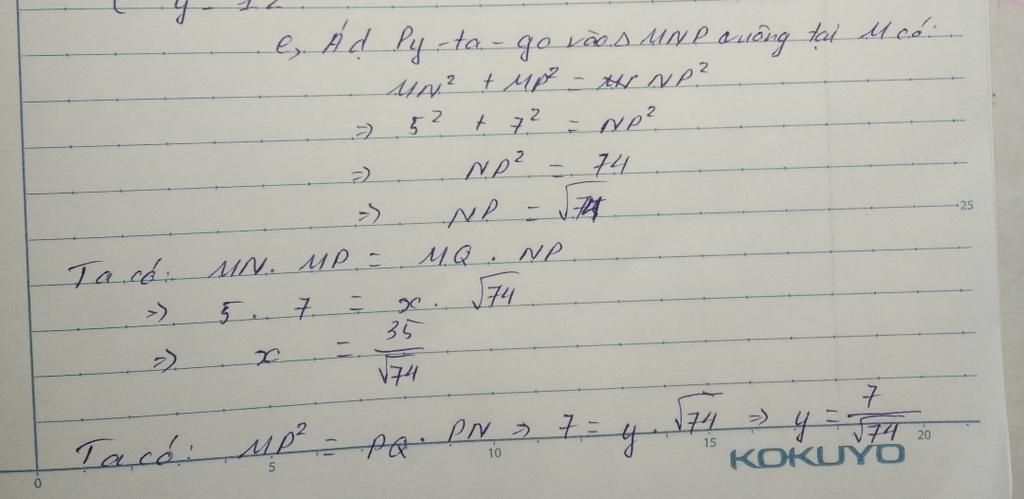 y = 12
e, Ád Py-ta-go vào Δ MNP vuông tại M có:
MN² + MP² = NP²
=> 5² + 7² = NP²
=> NP² = 74
=> NP = √74
25
Ta có: MN . MP = MQ . NP
=> 5 . 7 = x . √74
=> x = 35/√74
Ta có: MP² = PQ . PN => 7 = y . √74 => y = 7/√74
0 5 10 15 20
KOKUYO